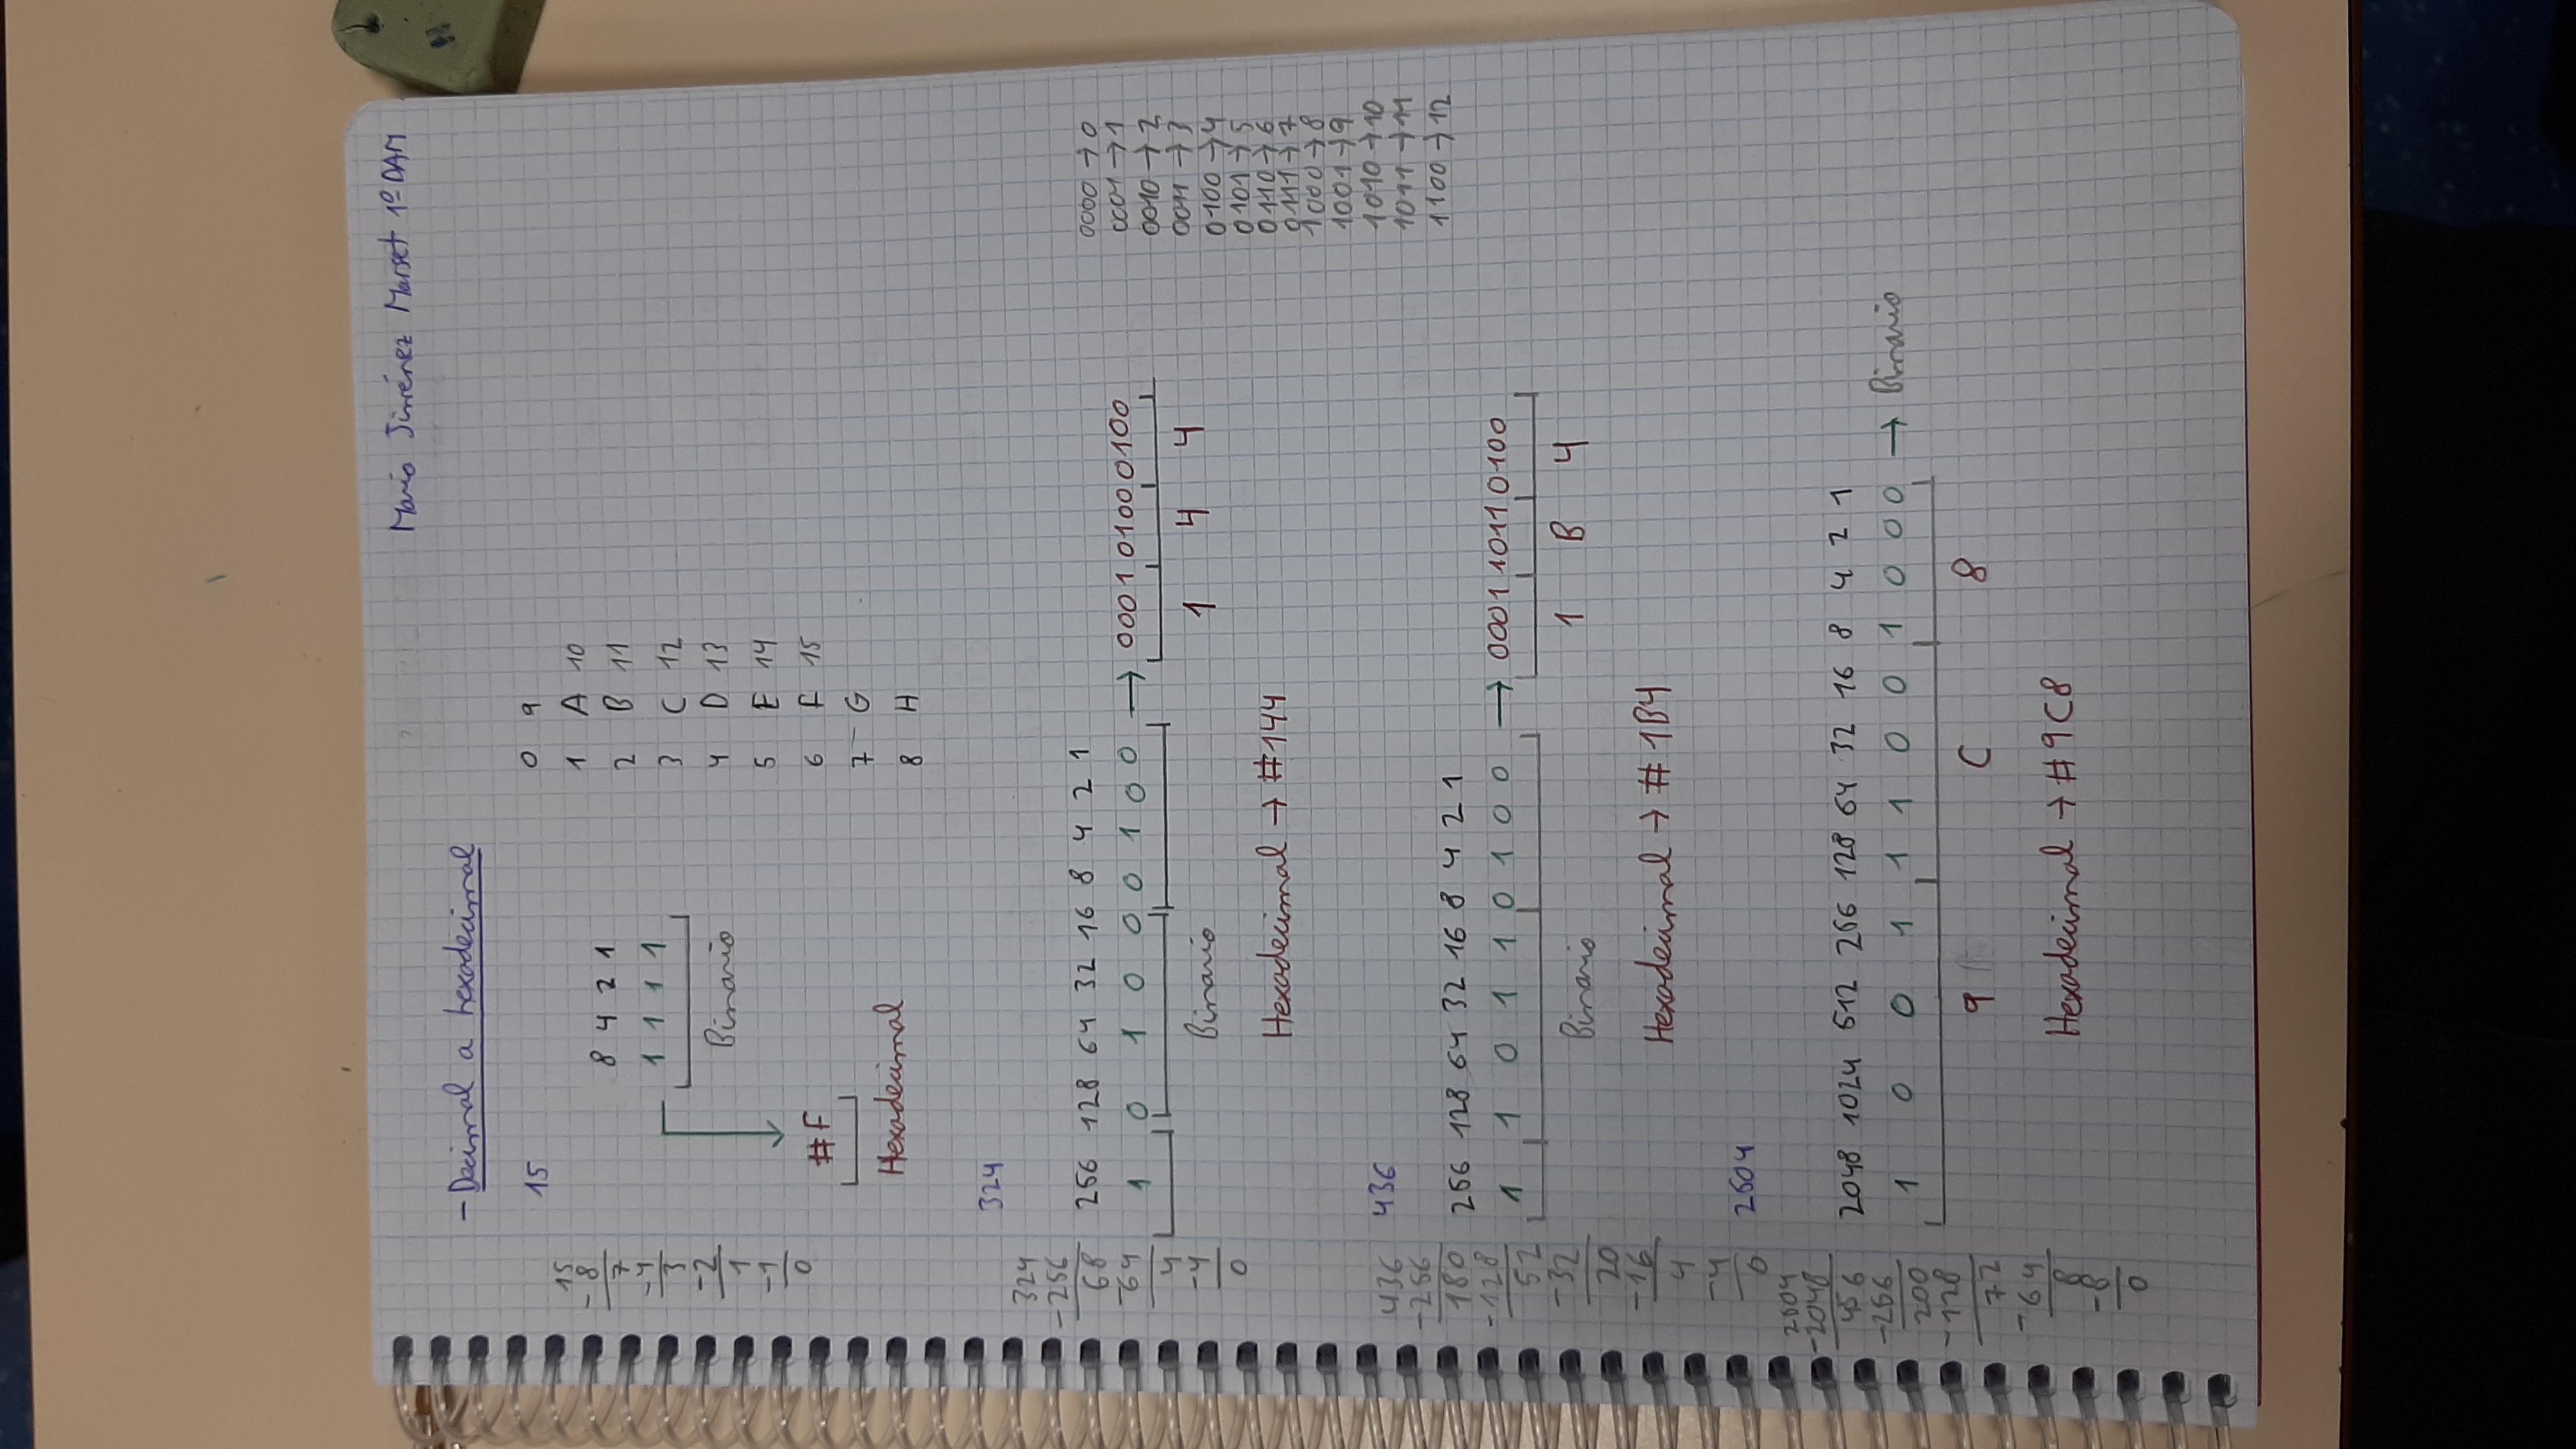 Mario Jiménez Marset 1º DAM
- Decimal a hexadecimal
15
15
-8
7
-4
3
-2
1
-1
0
8 4 2 1
1 1 1 1
Binario
#F
Hexadecimal
0 9
1 A 10
2 B 11
3 C 12
4 D 13
5 E 14
6 F 15
7 G
8 H
324
324
-256
68
-64
4
-4
0
256 128 64 32 16 8 4 2 1
1 0 1 0 0 0 1 0 0 → 0001 0100 0100
Binario
1 4 4
Hexadecimal → #144
0000 → 0
0001 → 1
0010 → 2
0011 → 3
0100 → 4
0101 → 5
0110 → 6
0111 → 7
1000 → 8
1001 → 9
1010 → 10
1011 → 11
1100 → 12
436
436
-256
180
-128
52
-32
20
-16
4
-4
0
256 128 64 32 16 8 4 2 1
1 1 0 1 1 0 1 0 0 → 0001 1011 0100
Binario
1 B 4
Hexadecimal → #1B4
2504
2504
-2048
456
-256
200
-128
72
-64
8
-8
0
2048 1024 512 256 128 64 32 16 8 4 2 1
1 0 0 1 1 1 0 0 1 0 0 0 → Binario
9 C 8
Hexadecimal → #9C8